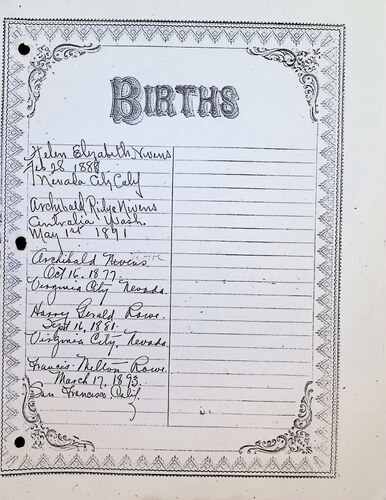 BIRTHS
Helen Elizabeth Nivens
Feb 28 1888
Nevada City Caly
Archibald Ridge Nivens
Centralia Wash.
May 1st 1891
Archibald Nivens
Oct 16. 1877.
Virginia City Nevada.
Harry Gerald Rowe.
Sept 16, 1881.
Virginia City, Nevada
Francis Milton Rowe.
March 17, 1893.
San Francisco Calif.